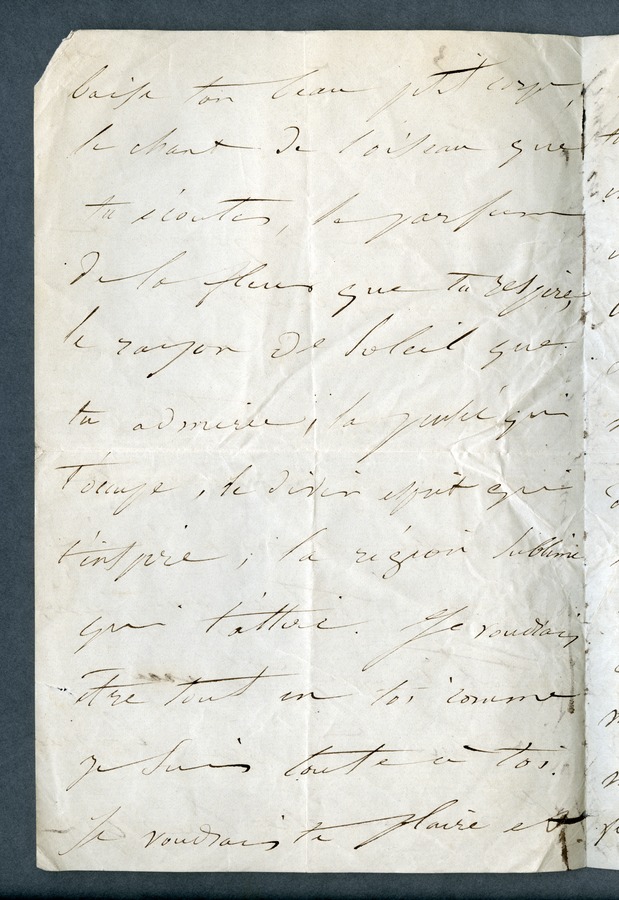 baise ton beau petit corps,
le chant de l'oiseau que
tu écoutes, le parfum
de la fleur que tu respire,
le rayon de soleil que
tu admire, la qui
t'occupe, le divin esprit qui
t'inspire, la région sublime
qui t'attire. Je voudrais
être tout en toi comme
je suis toute à toi.
Je voudrais te plaire et